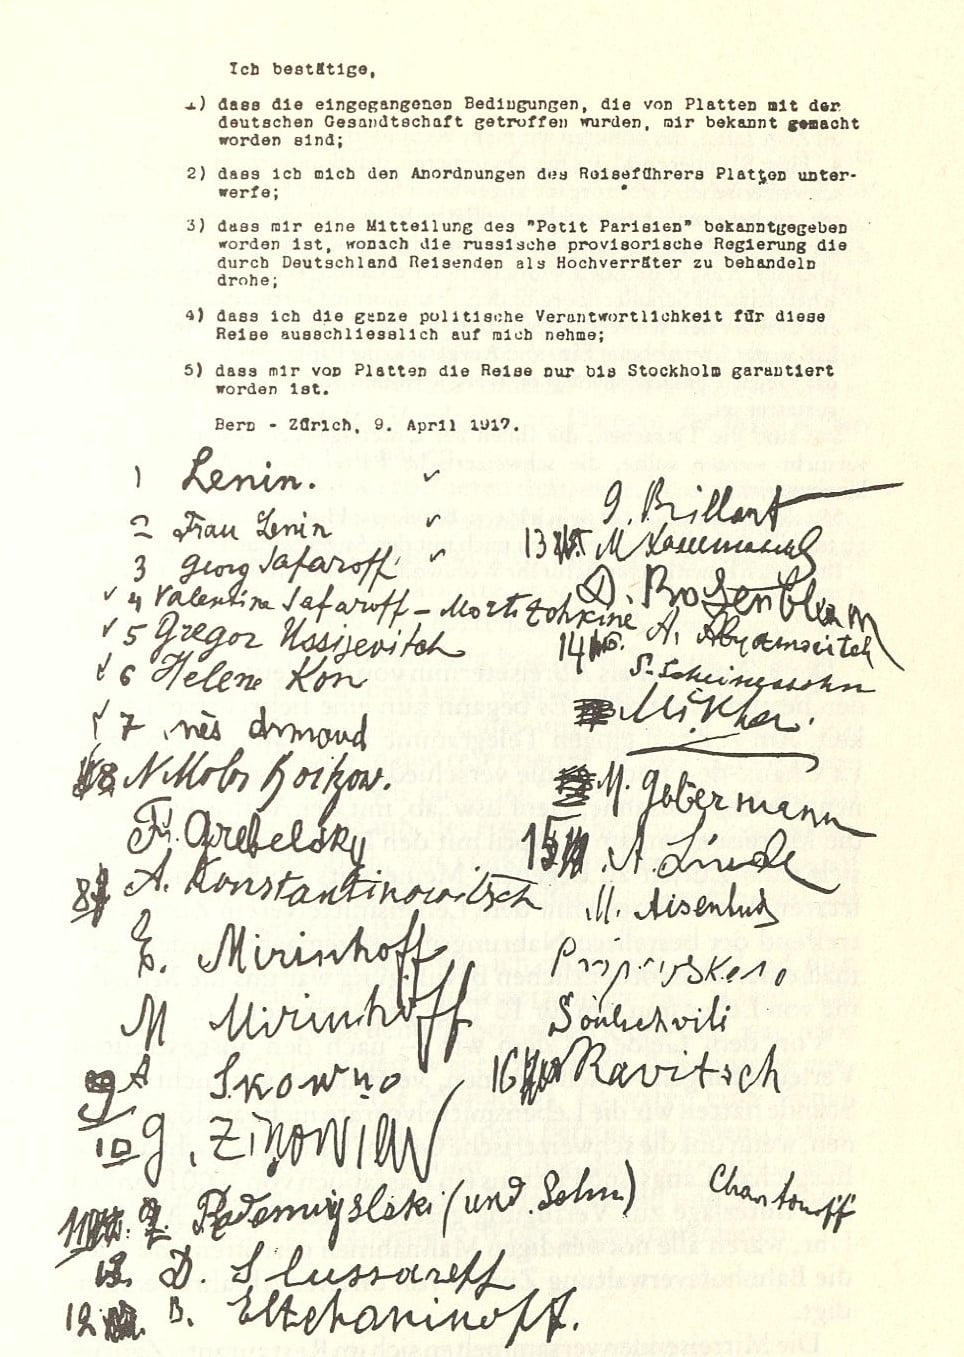 Ich bestätige,
1) dass die eingegangenen Bedingungen, die von Platten mit der
deutschen Gesandtschaft getroffen wurden, mir bekannt gemacht
worden sind;
2) dass ich mich den Anordnungen des Reiseführers Platten unter-
werfe;
3) dass mir eine Mitteilung des "Petit Parisien" bekanntgegeben
worden ist, wonach die russische provisorische Regierung die
durch Deutschland Reisenden als Hochverräter zu behandeln
drohe;
4) dass ich die ganze politische Verantwortlichkeit für diese
Reise ausschliesslich auf mich nehme;
5) dass mir von Platten die Reise nur bis Stockholm garantiert
worden ist.
Bern - Zürich, 9. April 1917.
1 Lenin.
2 Frau Lenin
3 Georg Safaroff
4 Valentina Safaroff - Mortotchkine
5 Gregor Ussijevitch
6 Helene Kon
7 Inès Armand
8 N.
Fr. Grebelsky
A. Konstantinowitsch
E. Mirinhoff
M Mirinhoff
9 A Skowno
10 G. Zinowiew
11 Radomyslski (und Sohn)
D. Slussareff
12 B. Eltchaninoff.
G. Brillant
13 M
D. Rosenblum
14 A. Abramovitch
S. Scheinessohn
Mikha.
M. Gobermann
15 A. Linde
M. Aisenhud
Pripevskeno
Souleshvili
16 Ravitsch
Charitonoff